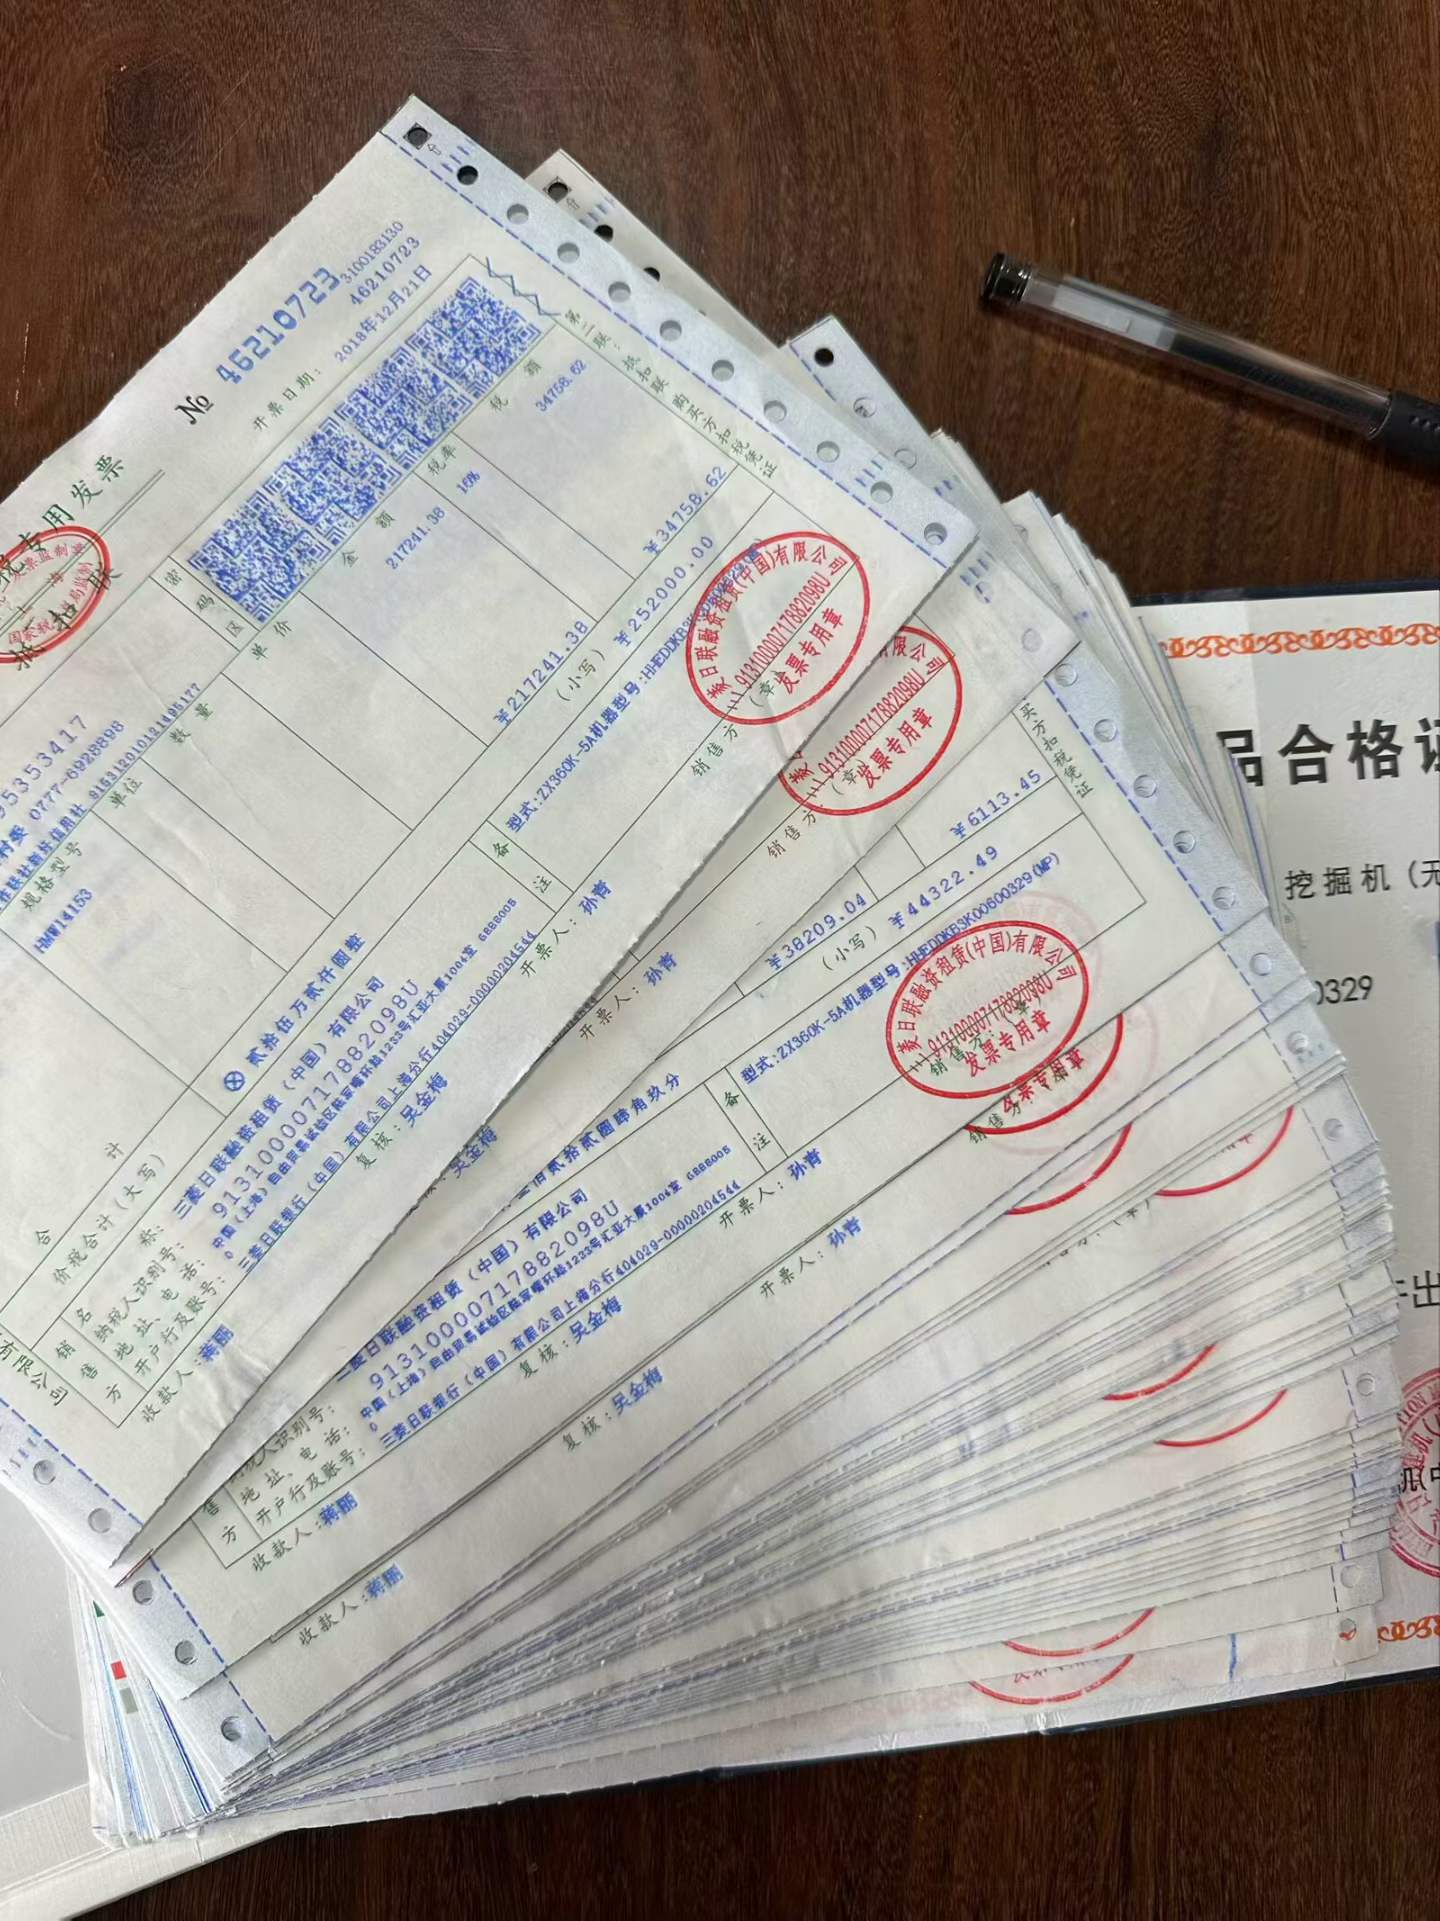 № 46210723
3100183130
46210723
开票日期: 2018年12月21日
专用发票
抵扣联
第二联:抵扣联 购买方扣税凭证
密码区
95353417
0777-6928898
规格型号
单位
数量
单价
金额
税率
税额
HMW14153
217241.38
16%
34758.62
合计
¥217241.38
¥34758.62
价税合计(大写)
ⓧ 贰拾伍万贰仟圆整
(小写) ¥252000.00
销售方
名称: 三菱日联融资租赁(中国)有限公司
纳税人识别号: 91310000717882098U
地址、电话: 中国(上海)自由贸易试验区陆家嘴环路1233号汇亚大厦1004室 6888005
开户行及账号: 三菱日联银行(中国)有限公司上海分行404029-00000204544
备注
型式:ZX360K-5A机器型号:HHEDDKB3K
收款人:蒋丽
复核:吴金梅
开票人:孙青
销售方:(章)
菱日联融资租赁(中国)有限公司
91310000717882098U
发票专用章
有限公司
吴金梅
开票人:孙青
销售方:(章)
91310000717882098U
发票专用章
买方扣税凭证
¥38209.04
¥6113.45
佰贰拾贰圆肆角玖分
(小写) ¥44322.49
三菱日联融资租赁(中国)有限公司
人识别号: 91310000717882098U
地址、电话: 中国(上海)自由贸易试验区陆家嘴环路1233号汇亚大厦1004室 6888005
开户行及账号: 三菱日联银行(中国)有限公司上海分行404029-00000204544
售方
备注
型式:ZX360K-5A机器型号:HHEDDKB3K00600329(MP)
收款人:蒋丽
复核:吴金梅
开票人:孙青
销售方:(章)
菱日联融资租赁(中国)有限公司
91310000717882098U
发票专用章
收款人:蒋丽
复核:吴金梅
开票人:孙青
销售方:
发票专用章
品合格证
挖掘机(无
0329
出
机(中